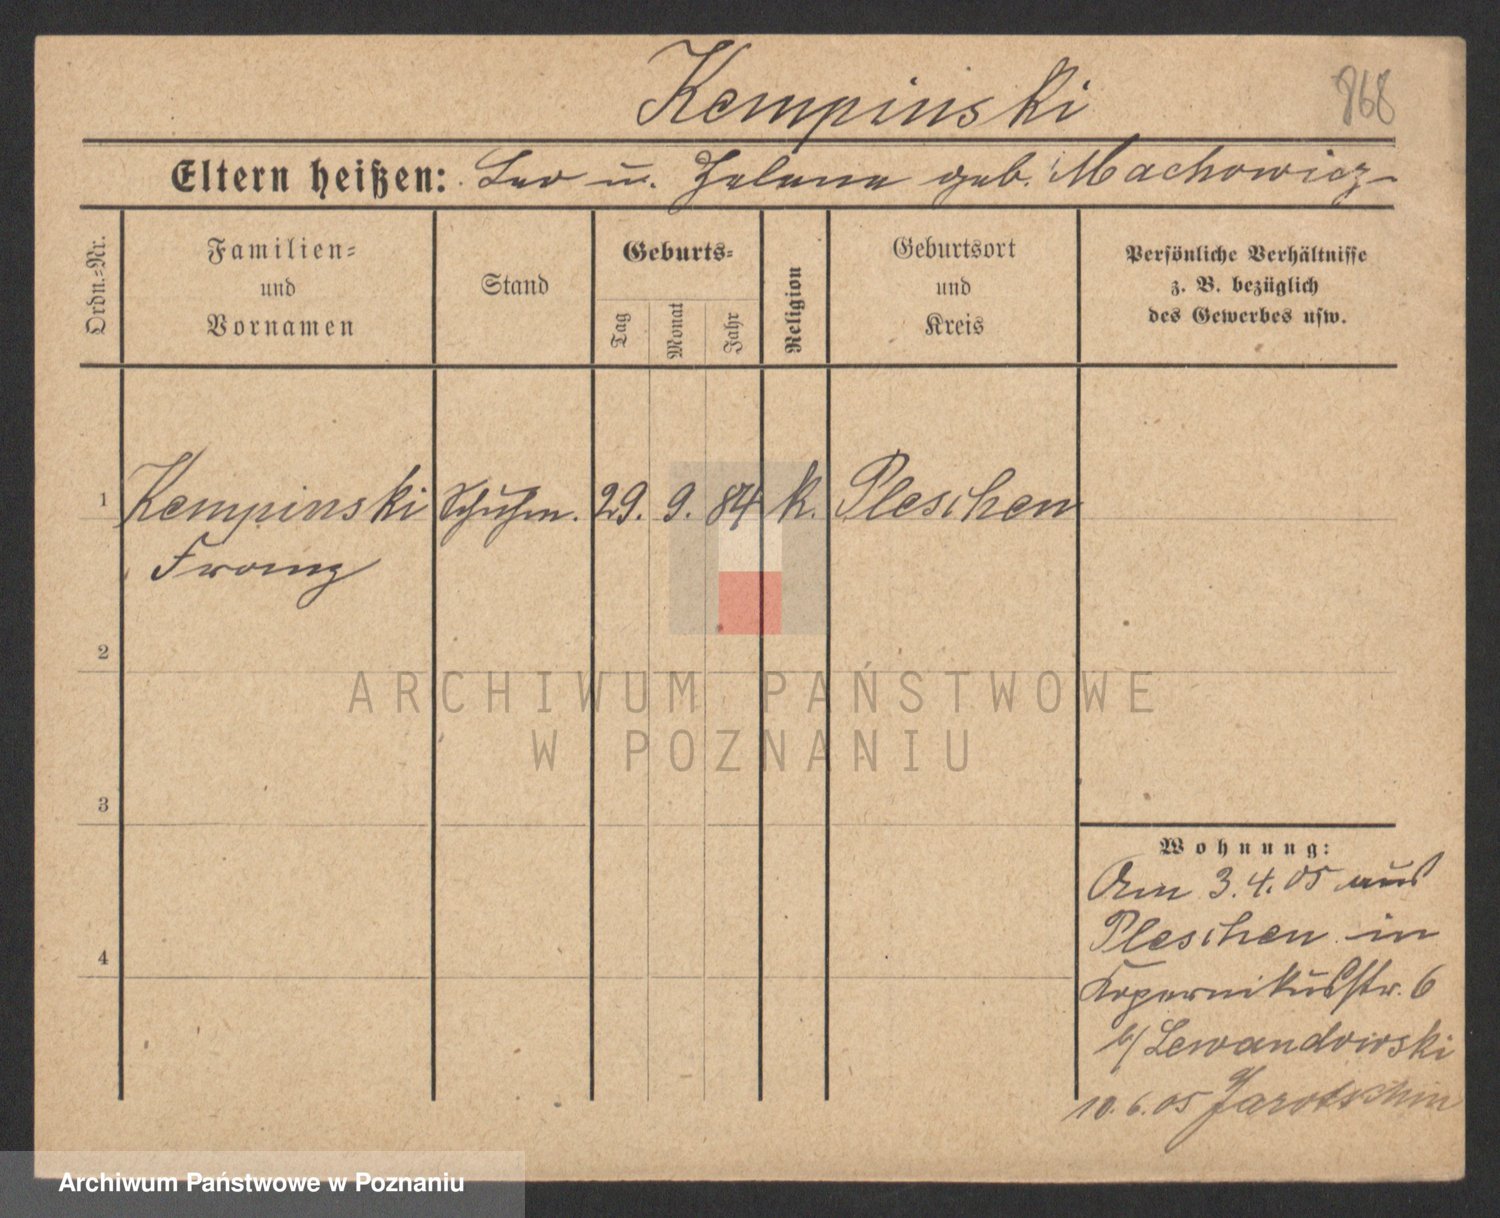 Kempinski
868
Eltern heißen: Leo u. Helena geb. Machowicz
Ordn.=Nr.
Familien=
und
Vornamen
Stand
Geburts=
Tag
Monat
Jahr
Religion
Geburtsort
und
Kreis
Persönliche Verhältnisse
z. B. bezüglich
des Gewerbes usw.
1 Kempinski Schuhm. 29. 9. 84 k. Pleschen
Franz
2
ARCHIWUM PAŃSTWOWE
W POZNANIU
3
Wohnung:
Am 3.4.05 aus
Pleschen in
4
Kopernikusstr. 6
b/ Lewandowski
10.6.05 Jarotschin
Archiwum Państwowe w Poznaniu